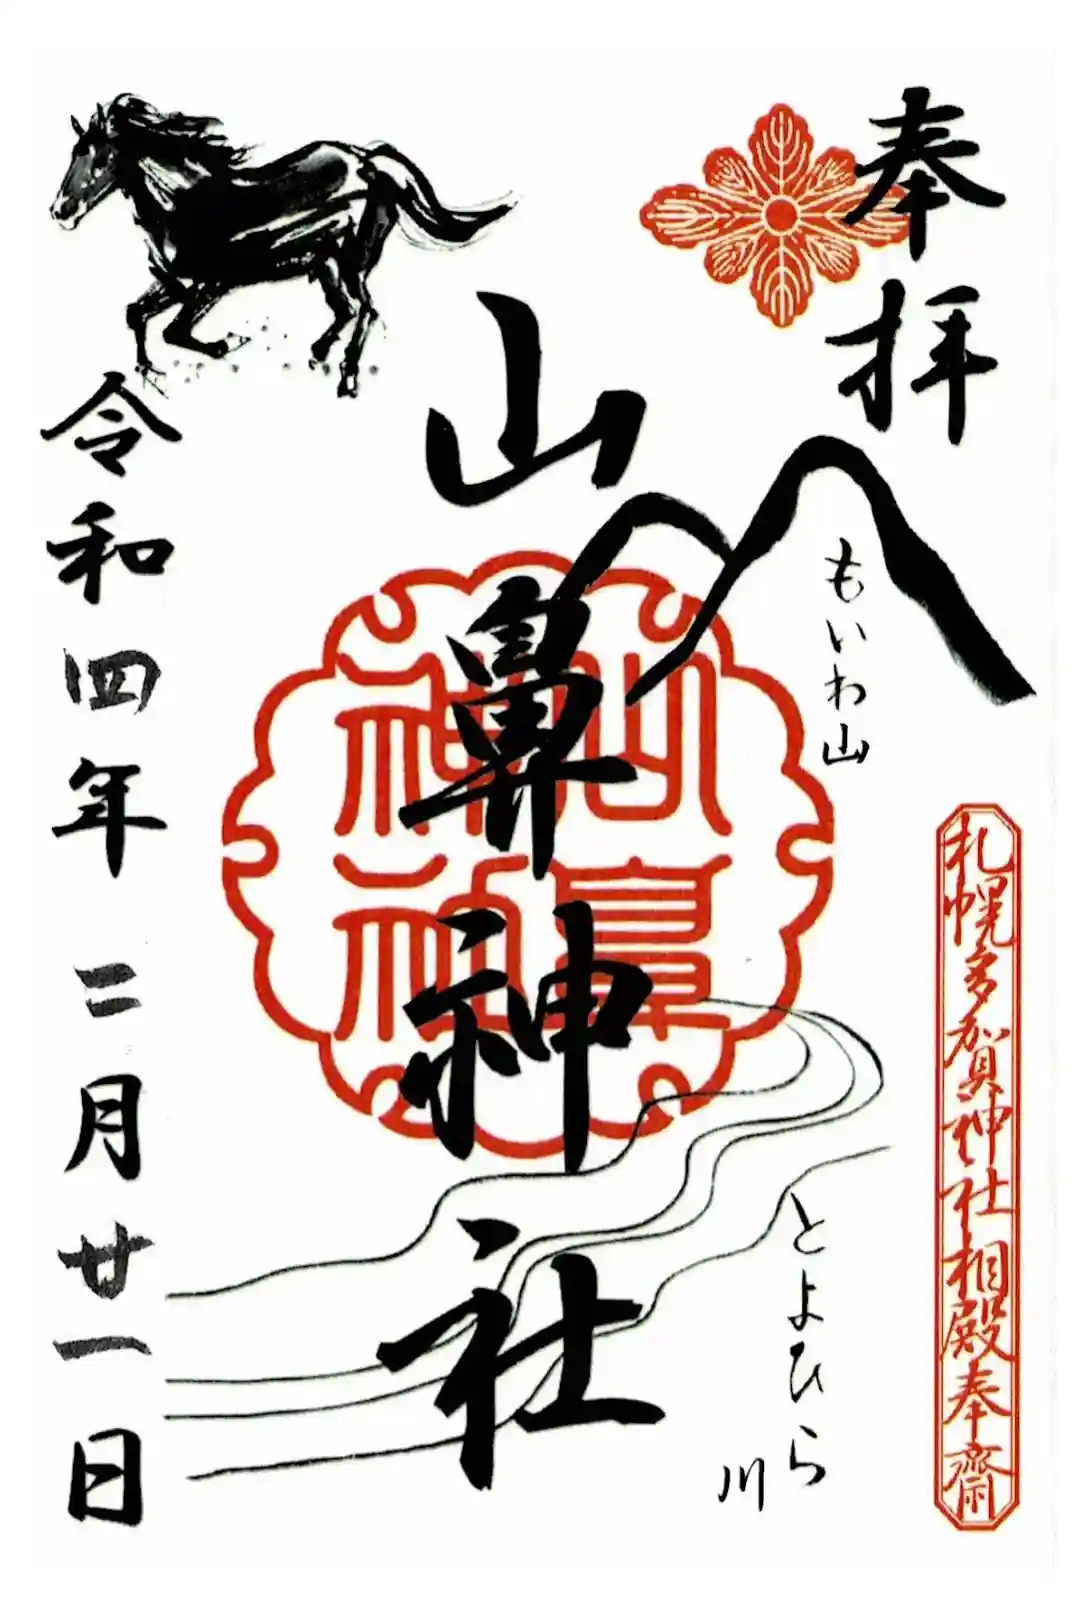 奉拝
もいわ山
とよひら川
札幌多賀神社相殿奉斎
山鼻神社
山鼻神社
令和四年二月廿一日